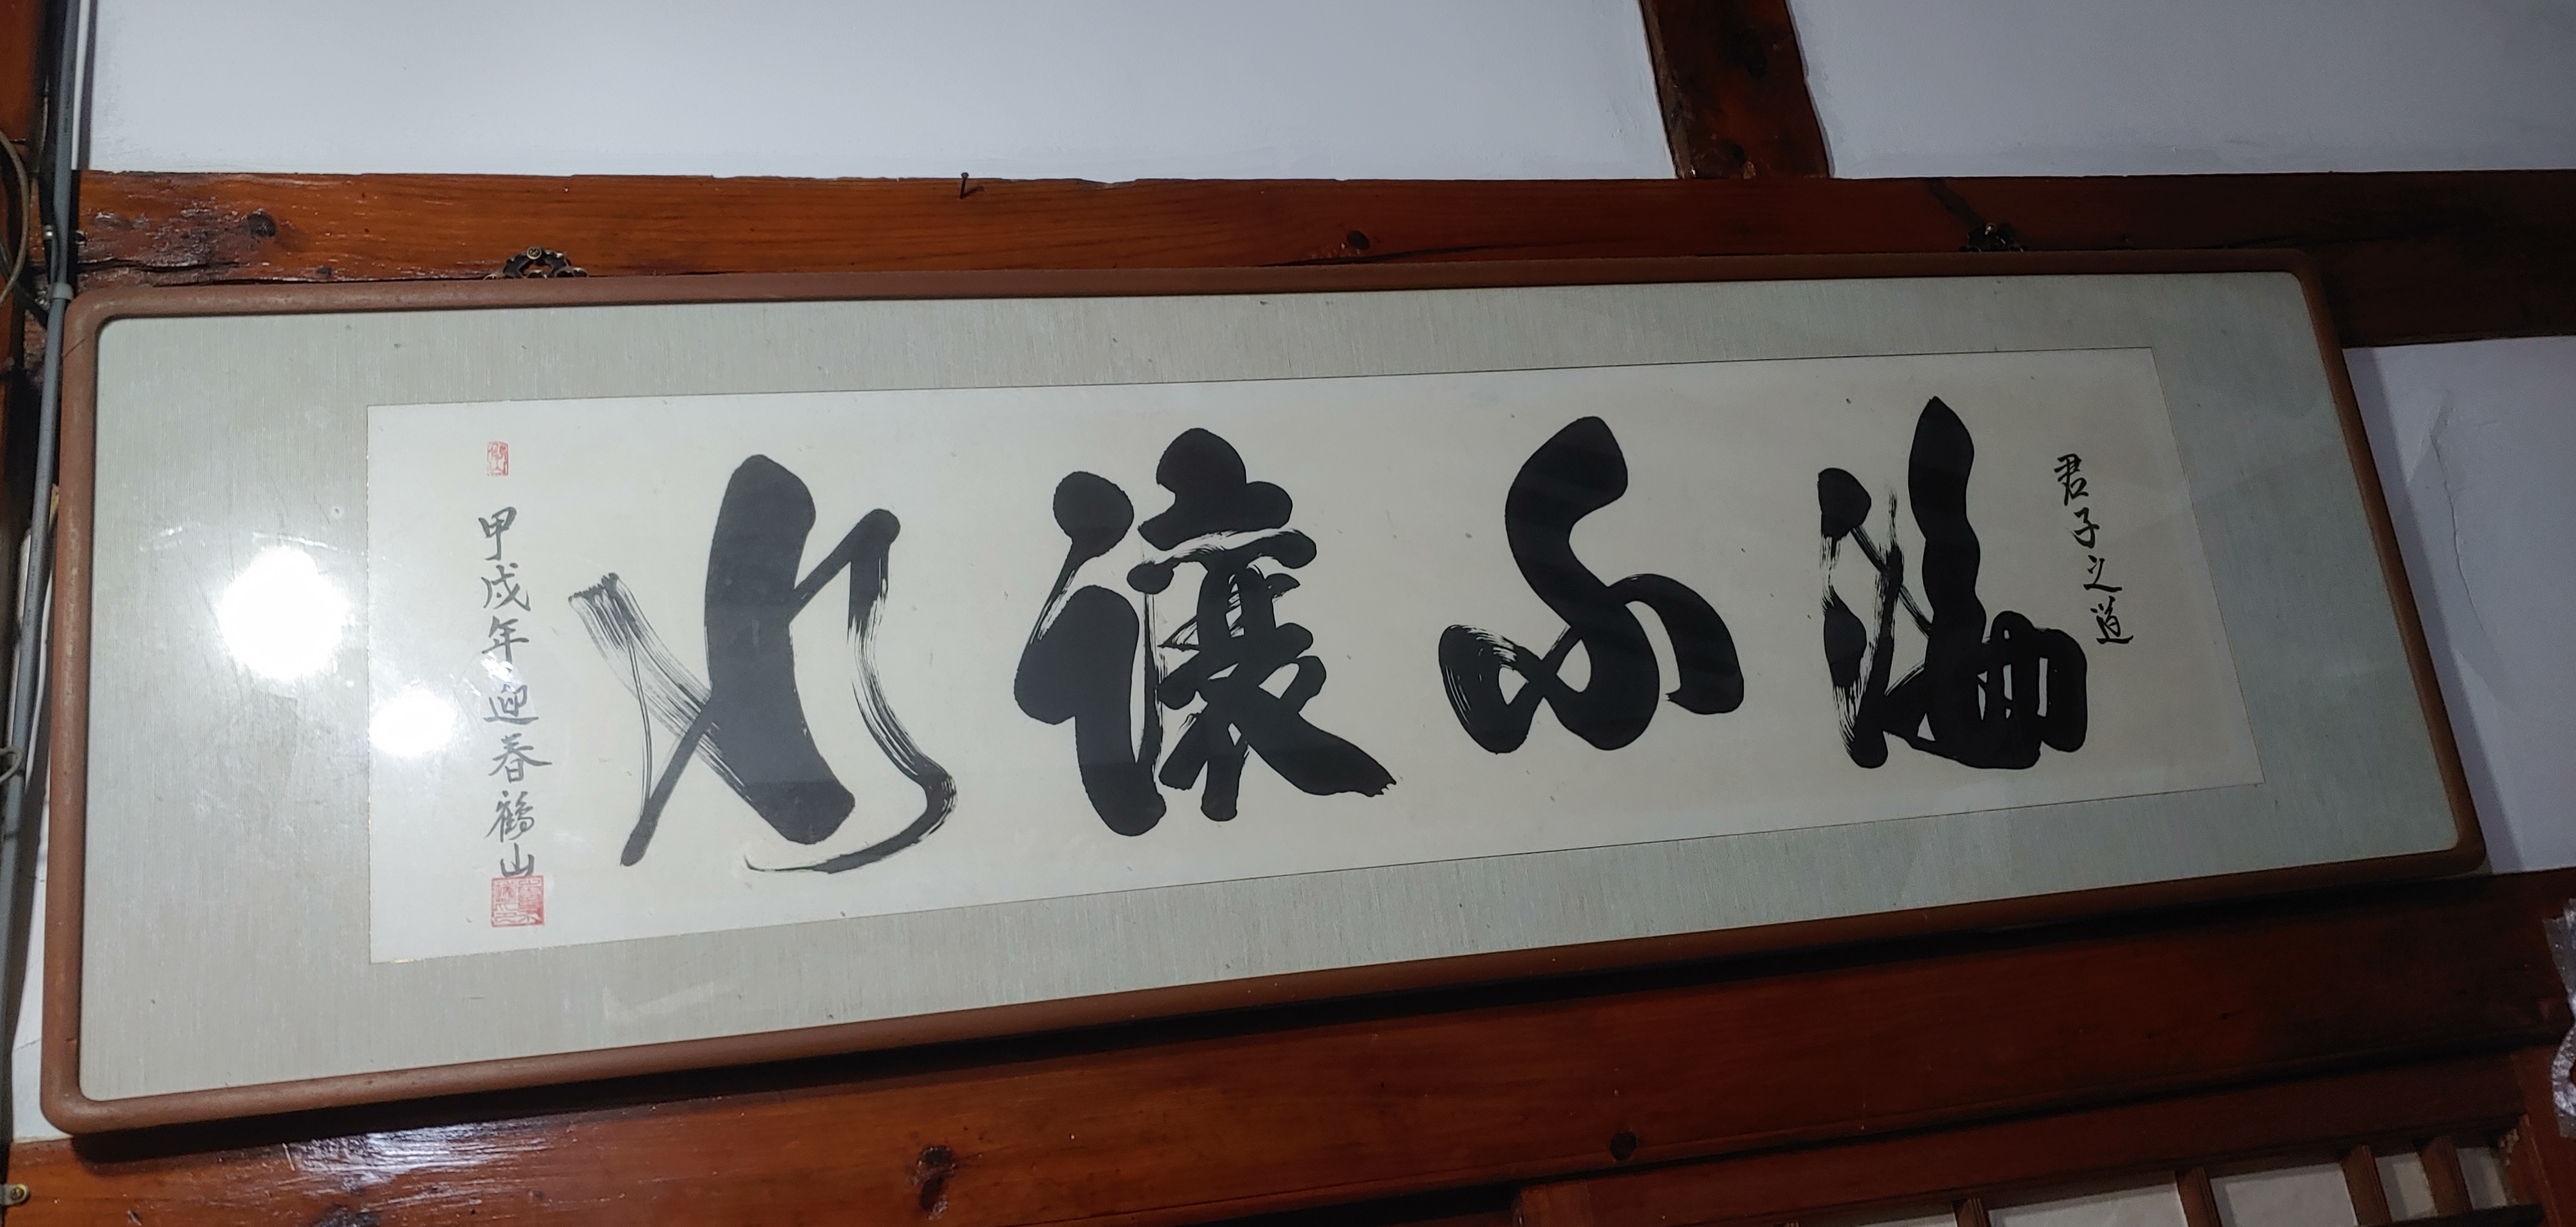 君子之道
海不讓水
甲戌年迎春 鶴山